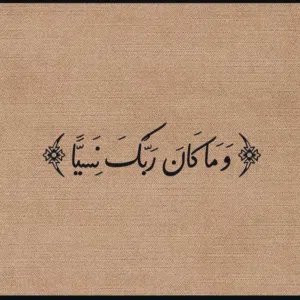 ﴿ وَمَا كَانَ رَبُّكَ نَسِيًّا ﴾